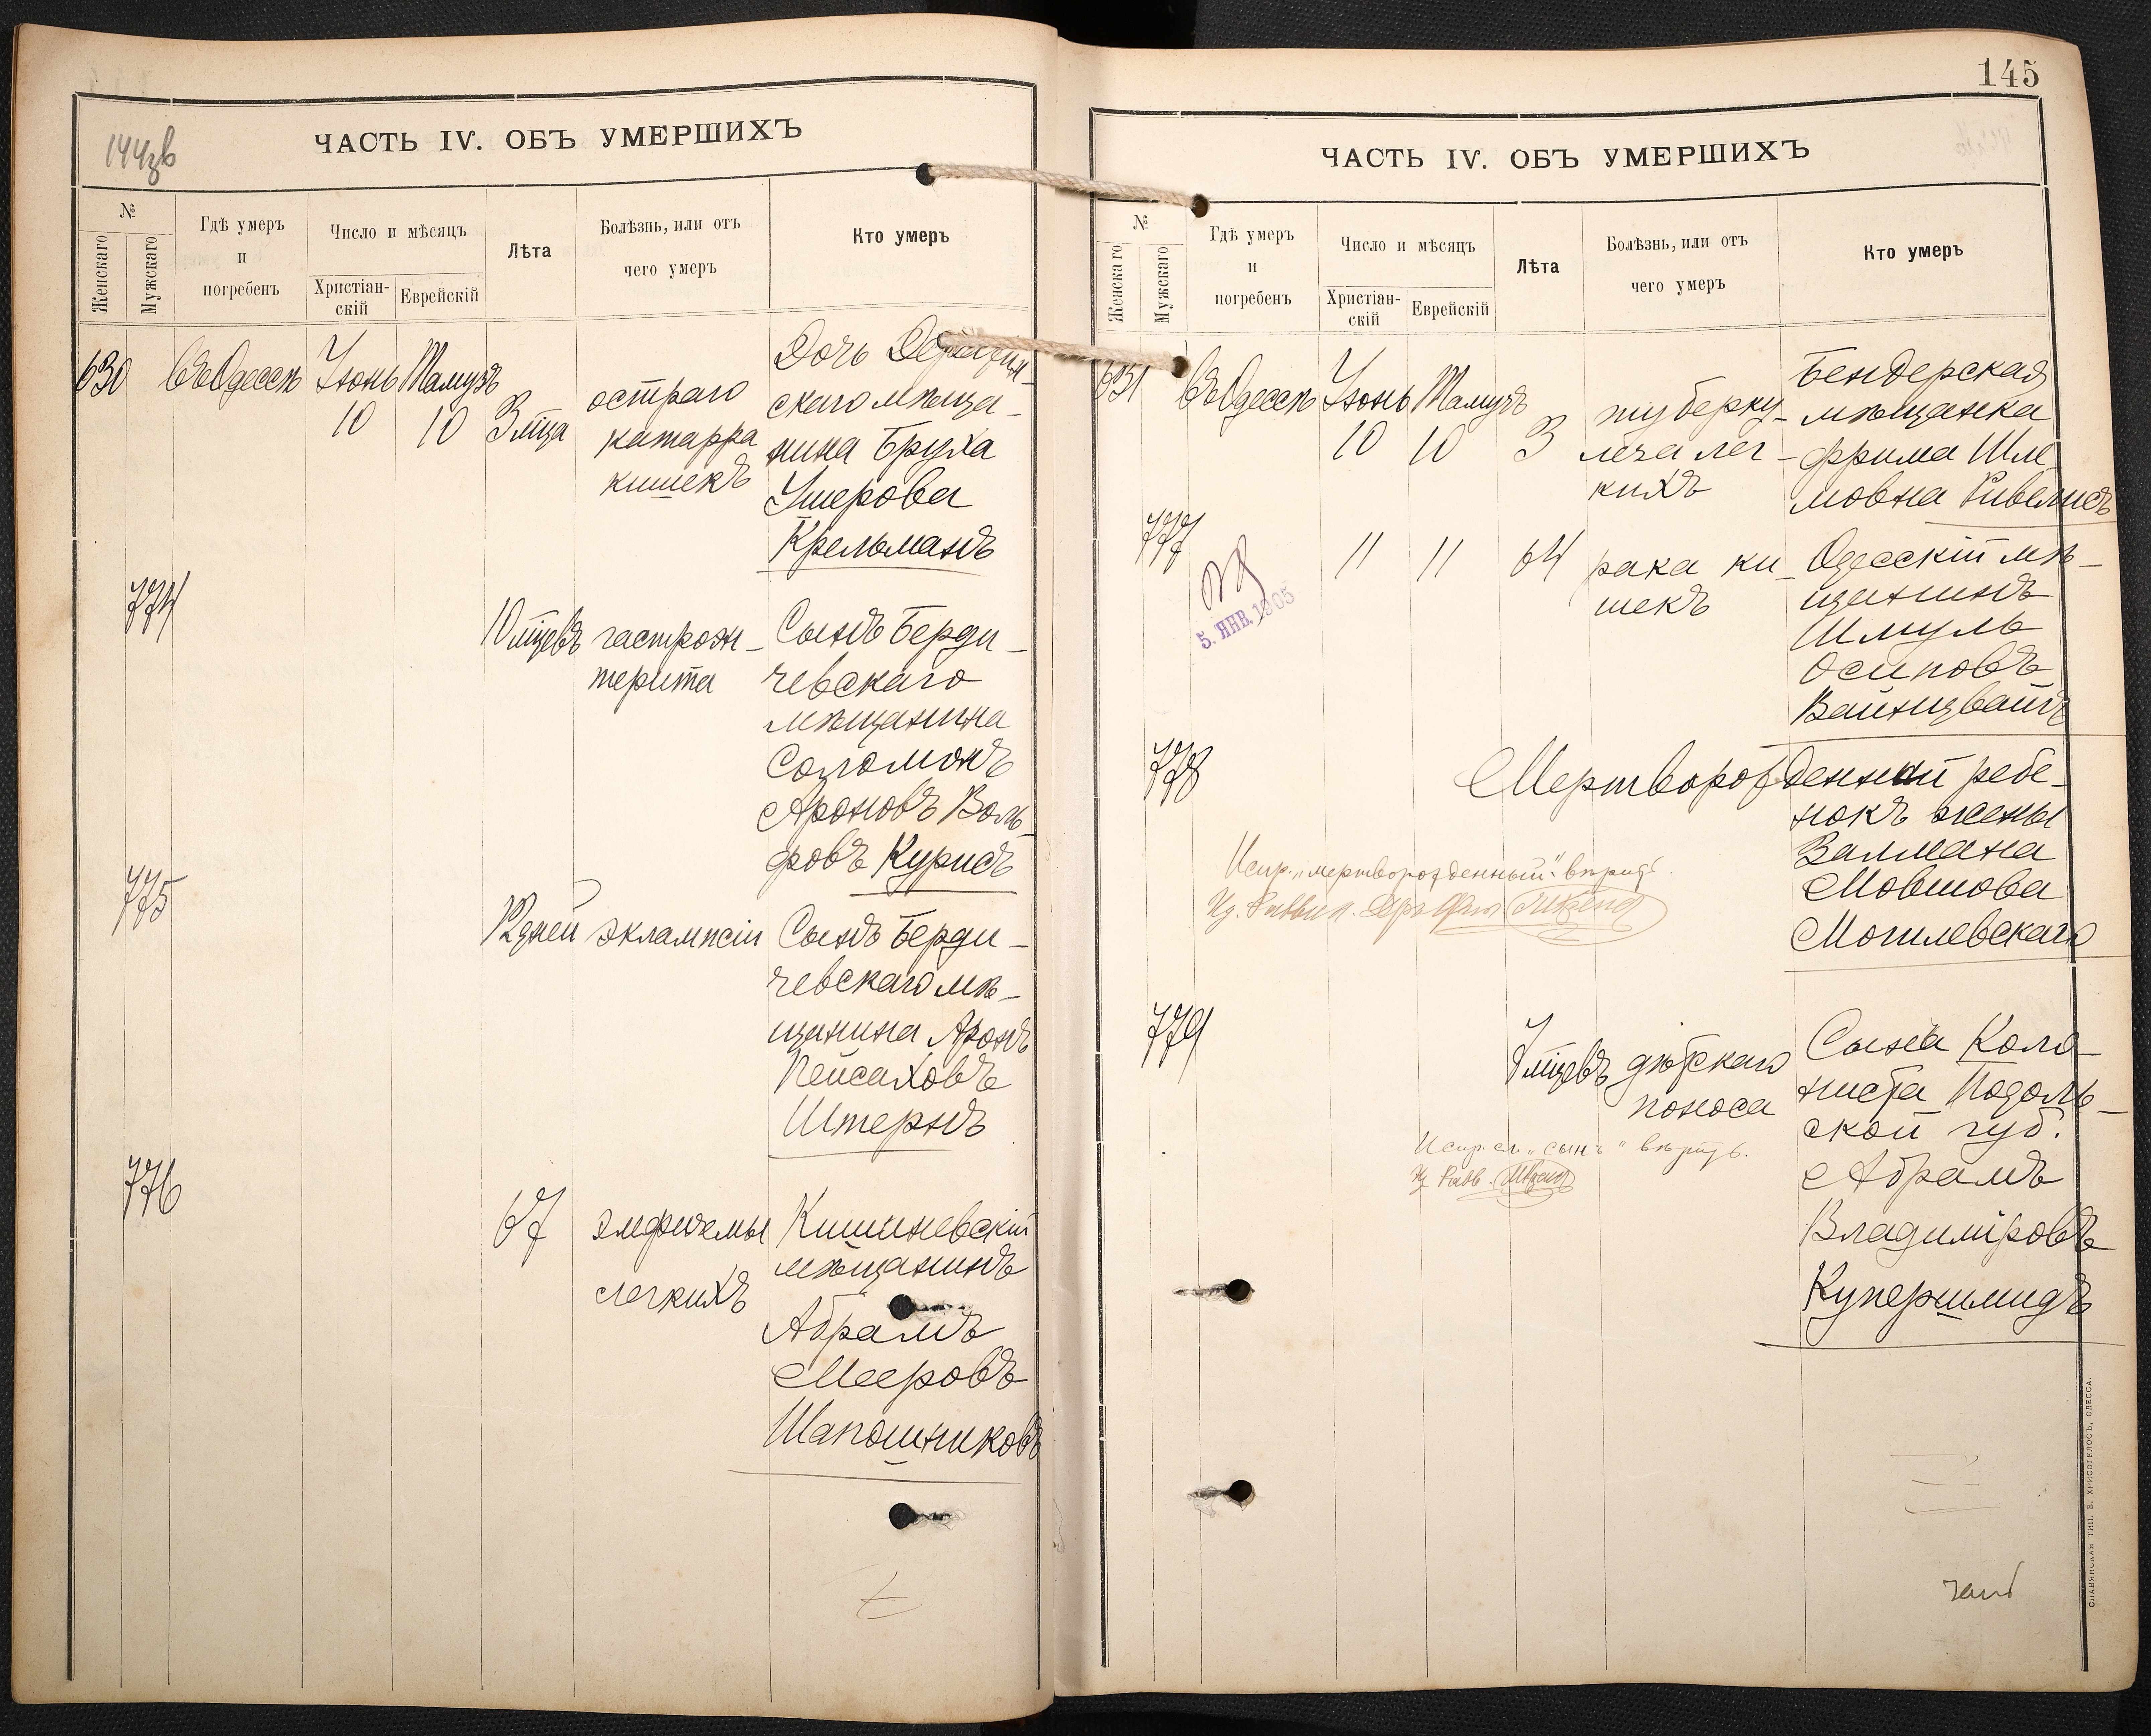 144зв
ЧАСТЬ IV. ОБЪ УМЕРШИХЪ
№
Женскаго
Мужскаго
Гдѣ умеръ
и
погребенъ
Число и мѣсяцъ
Христіан-
скій
Еврейскій
Лѣта
Болѣзнь, или отъ
чего умеръ
Кто умеръ
630 въ Одессѣ Іюнь Тамузъ
10 10 3 мѣца
остраго
катарра
кишекъ
Дочь
скаго мѣща-
нина Бруха
Ушерова
Крельманъ
774
10 мѣцевъ гастроэн-
терита
Сынъ Берди-
чевскаго
мѣщанина
Соломонъ
Ароновъ Воль-
фовъ Курисъ
775
12 дней эклампсіи
Сынъ Берди-
чевскаго мѣ-
щанина Аронъ
Пейсаховъ
Штернъ
776
67 эмфиземы
легкихъ
Кишиневскій
мѣщанинъ
Абрамъ
Мееровъ
Шапошниковъ
145
ЧАСТЬ IV. ОБЪ УМЕРШИХЪ
№
Женскаго
Мужскаго
Гдѣ умеръ
и
погребенъ
Число и мѣсяцъ
Христіан-
скій
Еврейскій
Лѣта
Болѣзнь, или отъ
чего умеръ
Кто умеръ
631 въ Одессѣ Іюнь Тамузъ
10 10 3
туберку-
леза лег-
кихъ
Бендерская
мѣщанка
Фрима Шле
мовна Ривелисъ
777
5. ЯНВ. 1905
11 11 64
рака ки-
шекъ
Одесскій мѣ-
щанинъ
Шмуль
Осиповъ
Вайнцвайгъ
778
Мертворожденный ребе-
нокъ жены
Залмана
Мовшова
Могилевскаго
Испр. „мертворожденный" вѣрить.
779
7 мѣцевъ дѣтскаго
поноса
Сына Коло-
ниста Подоль-
ской губ.
Абрамъ
Владиміровъ
Купершмидъ
Испр. сл. „сынъ" вѣрить.
СЛАВЯНСКАЯ ТИП. Е. ХРИСОГЕЛОСЪ, ОДЕССА.